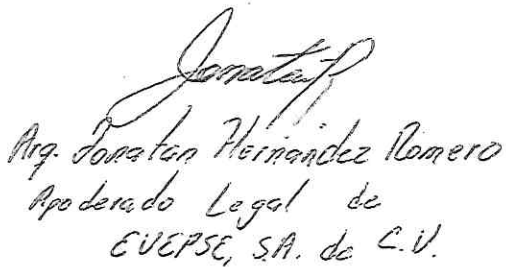 Jonatan R
Arq. Jonatan Hernández Romero
Apoderado Legal de
EVEPSE, S.A. de C.V.